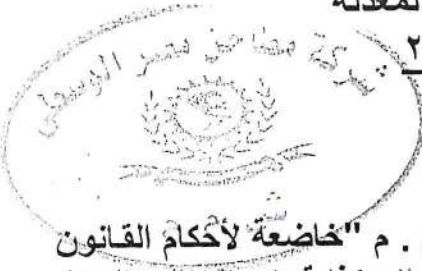 لمعدلة
٢
شركة مطاحن مصر الوسطى
. م "خاضعة لأحكام القانون